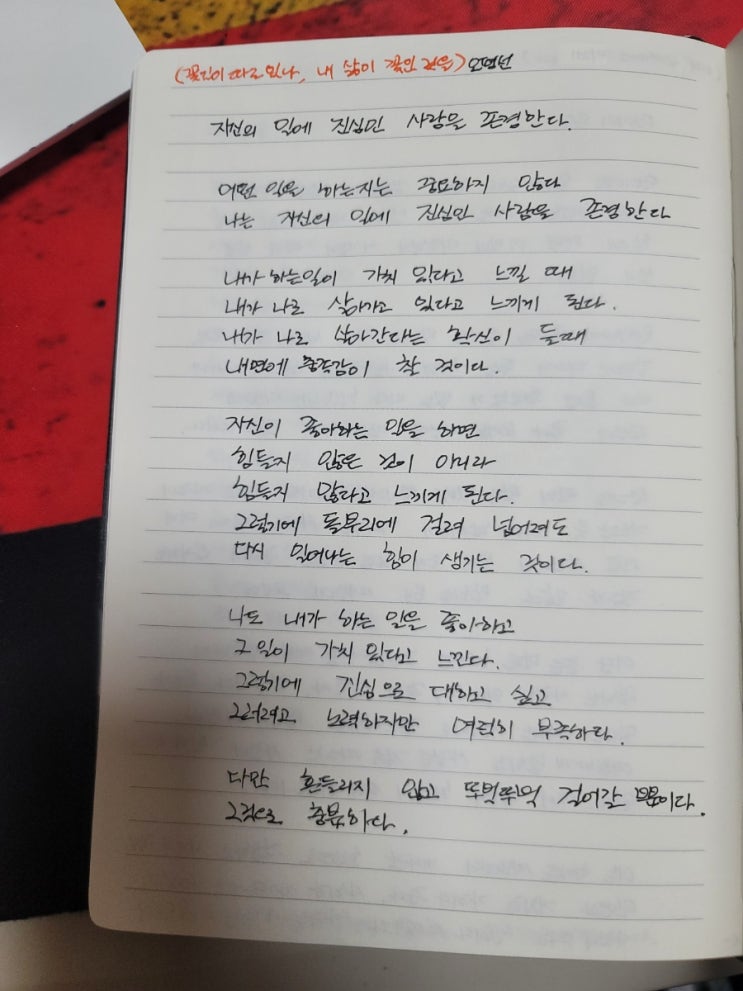 (꽃길이 따로 있나, 내 삶이 꽃인 것을) 오평선
자신의 일에 진심인 사람을 존경한다.
어떤 일을 하는지는 중요하지 않다
나는 자신의 일에 진심인 사람을 존경한다
내가 하는일이 가치 있다고 느낄 때
내가 나로 살아가고 있다고 느끼게 된다.
내가 나로 살아간다는 확신이 들때
내면에 충족감이 찰 것이다.
자신이 좋아하는 일을 하면
힘들지 않은 것이 아니라
힘들지 않다고 느끼게 된다.
그렇기에 돌부리에 걸려 넘어져도
다시 일어나는 힘이 생기는 것이다.
나도 내가 하는 일을 좋아하고
그 일이 가치 있다고 느낀다.
그렇기에 진심으로 대하고 싶고
그러려고 노력하지만 여전히 부족하다.
다만 흔들리지 않고 뚜벅뚜벅 걸어갈 뿐이다.
그것으로 충분하다.